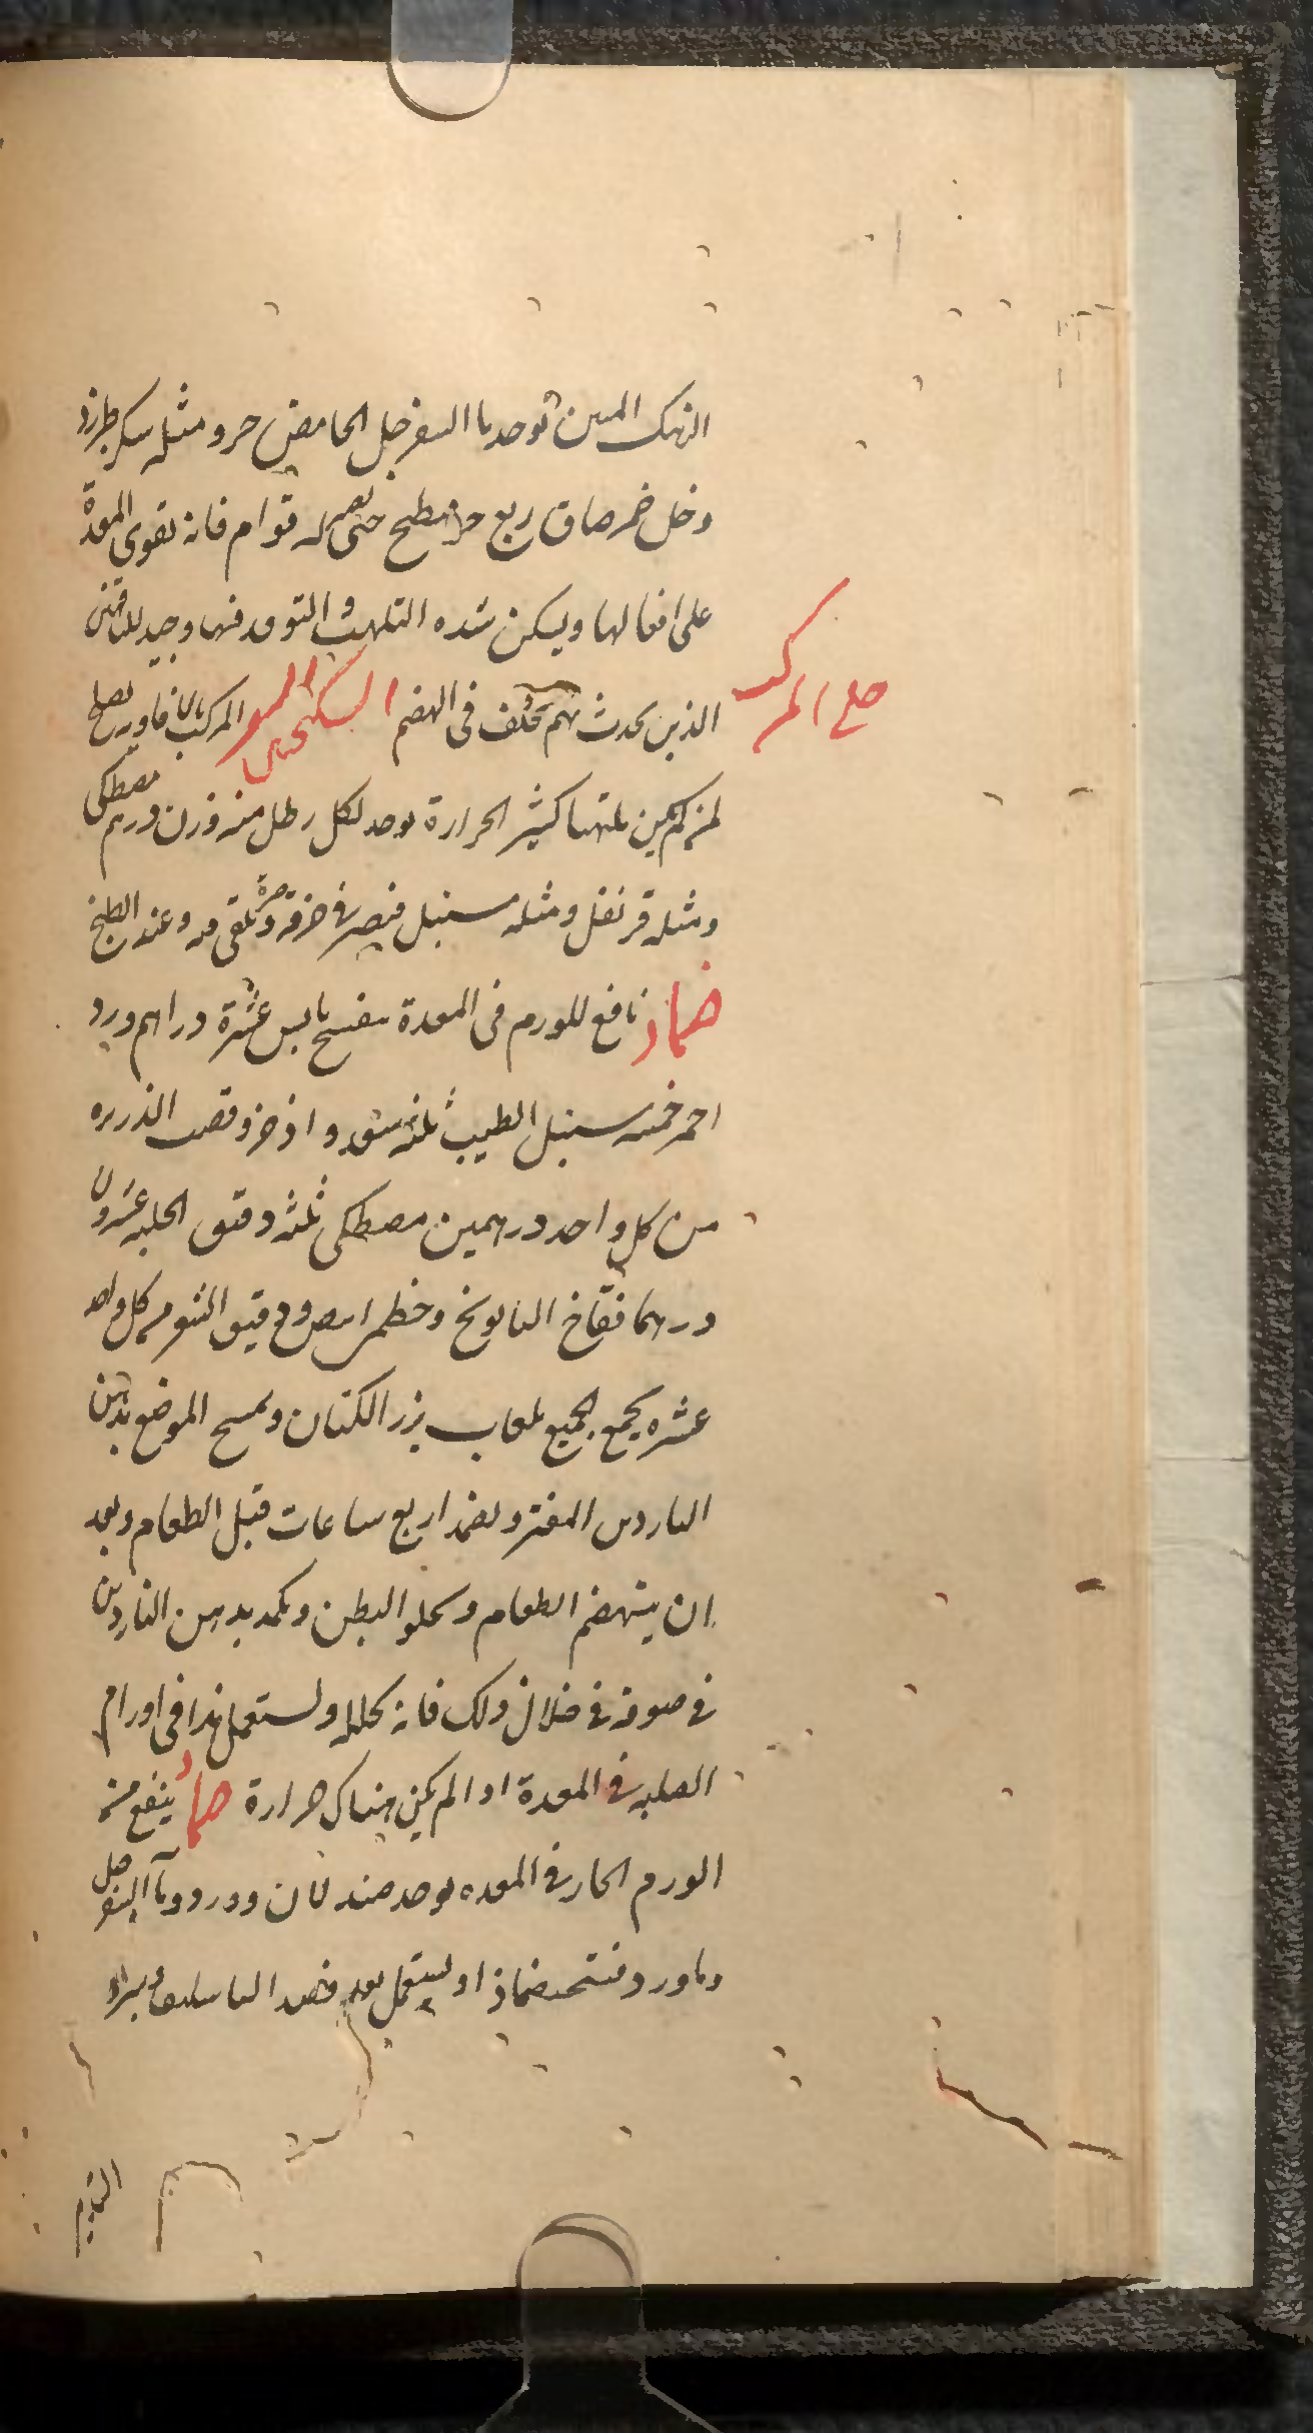 النهك المبين توخذ ما السفرجل الحامض جزو مثله سكر طبرزد
وخل خمر صادق ربع جز يطبخ حتى يصير له قوام فانه يقوى المعدة
على افعالها ويسكن شده التلهب والتوقد فيها وجيد للناقهين
الذين يحدث بهم تخلف فى الهضم السكنجبين السفرجلى المركب بالافاويه يصلح
لمن لم يكن ملتهبا كثير الحرارة يوخذ لكل رطل منه وزن درهم مصطكى
ومثله قرنفل ومثله سنبل فيصر فى خرقة وتلقى فيه عند الطبخ
ضماد نافع للورم فى المعدة بنفسج يابس عشرة دراهم ورد
احمر خمسه سنبل الطيب ثلثه سعد واذخر وقصب الذريره
من كل واحد درهمين مصطكى ثلثه دقيق الحلبه عشرون
درهما فقاح البابونج وخطمى ابيض ودقيق الشعير من كل واحد
عشره يجمع الجميع بلعاب بزر الكتان ويمسح الموضع بدهن
الناردين المفتر ويضمد اربع ساعات قبل الطعام وبعد
ان ينهضم الطعام ويخلو البطن ويكمد بدهن الناردين
فى صوفه فى خلال ذلك فانه يحلله ويستعمل هذا فى اورام
الصلبه فى المعدة اذا لم يكن هناك حرارة ضماد ينفع من
الورم الحار فى المعده يوخذ صندلان وورد وماء السفرجل
وماورد فيتخذ ضمادا ويستعمل بعد فصد الباسليق